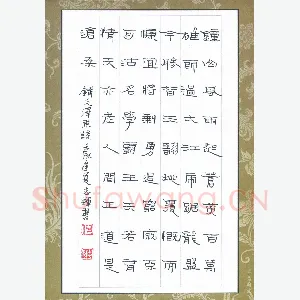 鐘山風雨起蒼黃百萬
雄師過大江虎踞龍盤
今勝昔天翻地覆慨而
慷宜將剩勇追窮寇不
可沽名學霸王天若有
情天亦老人間正道是
滄桑 錄毛澤東詩
Shufawang.CN